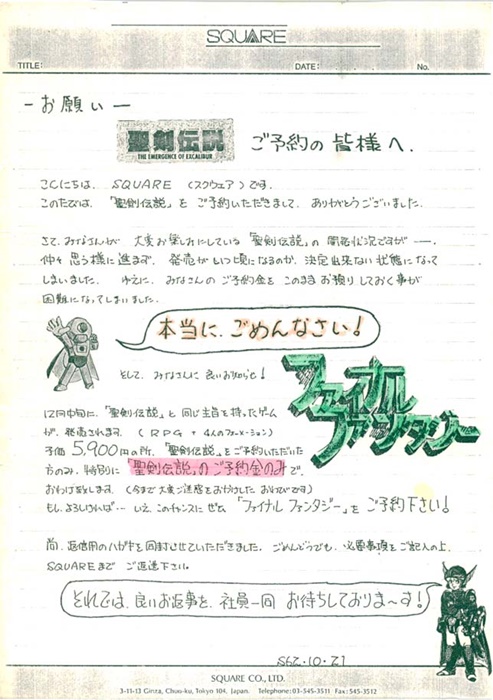 SQUARE
TITLE: DATE: . . . No.
ーお願いー
聖剣伝説
THE EMERGENCE OF EXCALIBUR
ご予約の皆様へ.
こんにちは. SQUARE (スクウェア) です.
このたびは.「聖剣伝説」を ご予約いただきまして. ありがとうございました.
さて.みなさんが 大変お楽しみにしている「聖剣伝説」の 開発状況ですがー.
仲々 思う様に進まず. 発売がいつ頃になるのか. 決定出来ない状態になって
しまいました. ゆえに. みなさんの ご予約金を このまま お預りしておく事が
困難になってしまいました.
本当に.ごめんなさい!
そして. みなさんに 良いお知らせ!
ファイナル
ファンタジー
12月中旬に.「聖剣伝説」と 同じ主旨を持ったゲーム
が. 発売されます. (RPG + 4人のフォーメーション)
予価 5,900円の所.「聖剣伝説」をご予約いただいた
方のみ.特別に「聖剣伝説」のご予約金のみで.
おわけ致します. (今まで大変ご迷惑をおかけした おわびです)
もし.よろしければ… いえ.このチャンスに ぜひ「ファイナル ファンタジー」を ご予約下さい!
尚.返信用のハガキを 同封させていただきました. ごめんどうでも. 必要事項を ご記入の上.
SQUAREまで ご返送下さい.
それでは.良いお返事を. 社員一同 お待ちしておりま〜す!
S62.10.21
SQUARE CO., LTD.
3-11-13 Ginza, Chuo-ku, Tokyo 104, Japan. Telephone: 03-545-3511 Fax: 545-3512